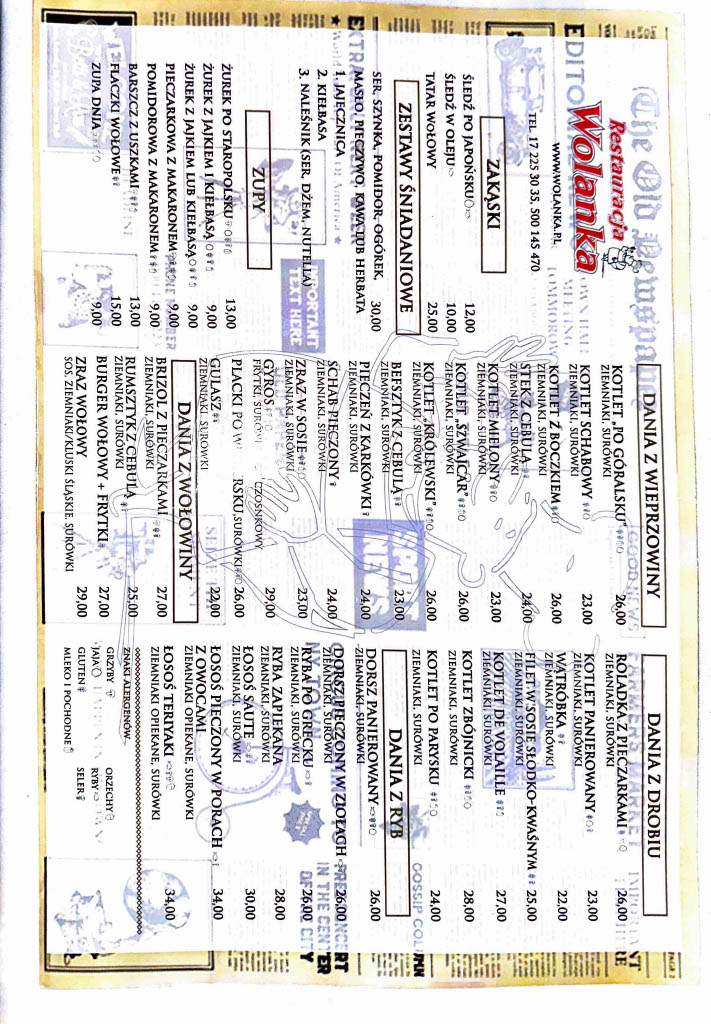 Restauracja
Wolanka
WWW.WOLANKA.PL
TEL. 17 225 30 35, 500 145 470
ZAKĄSKI
ŚLEDŹ PO JAPOŃSKU 12,00
ŚLEDŹ W OLEJU 10,00
TATAR WOŁOWY 25,00
ZESTAWY ŚNIADANIOWE
SER, SZYNKA, POMIDOR, OGÓREK, 30,00
MASŁO, PIECZYWO, KAWA LUB HERBATA
1. JAJECZNICA
2. KIEŁBASA
3. NALEŚNIK (SER, DŻEM, NUTELLA)
ZUPY
ŻUREK PO STAROPOLSKU 13,00
ŻUREK Z JAJKIEM I KIEŁBASĄ 9,00
ŻUREK Z JAJKIEM LUB KIEŁBASĄ 9,00
PIECZARKOWA Z MAKARONEM 9,00
POMIDOROWA Z MAKARONEM 9,00
BARSZCZ Z USZKAMI 13,00
FLACZKI WOŁOWE 15,00
ZUPA DNIA 9,00
DANIA Z WIEPRZOWINY
KOTLET „PO GÓRALSKU” 26,00
ZIEMNIAKI, SURÓWKI
KOTLET SCHABOWY 23,00
ZIEMNIAKI, SURÓWKI
KOTLET Z BOCZKIEM 26,00
ZIEMNIAKI, SURÓWKI
STEK Z CEBULĄ 24,00
ZIEMNIAKI, SURÓWKI
KOTLET MIELONY 23,00
ZIEMNIAKI, SURÓWKI
KOTLET „SZWAJCAR” 26,00
ZIEMNIAKI, SURÓWKI
KOTLET „KRÓLEWSKI” 26,00
ZIEMNIAKI, SURÓWKI
BEFSZTYK Z CEBULĄ 23,00
ZIEMNIAKI, SURÓWKI
PIECZEŃ Z KARKÓWKI 24,00
ZIEMNIAKI, SURÓWKI
SCHAB PIECZONY 24,00
ZIEMNIAKI, SURÓWKI
ZRAZ W SOSIE 23,00
ZIEMNIAKI, SURÓWKI
GYROS 29,00
FRYTKI, SURÓWKI CZOSNKOWY
PLACKI PO SURÓWKI 26,00
GULASZ 22,00
ZIEMNIAKI, SURÓWKI
DANIA Z WOŁOWINY
BRIZOL Z PIECZARKAMI 27,00
ZIEMNIAKI, SURÓWKI
RUMSZTYK Z CEBULĄ 25,00
ZIEMNIAKI, SURÓWKI
BURGER WOŁOWY + FRYTKI 27,00
ZRAZ WOŁOWY 29,00
SOS, ZIEMNIAKI/KLUSKI ŚLĄSKIE, SURÓWKI
DANIA Z DROBIU
ROLADKA Z PIECZARKAMI 26,00
ZIEMNIAKI, SURÓWKI
KOTLET PANIEROWANY 23,00
ZIEMNIAKI, SURÓWKI
WĄTRÓBKA 22,00
ZIEMNIAKI, SURÓWKI
FILET W SOSIE SŁODKO-KWAŚNYM 25,00
ZIEMNIAKI, SURÓWKI
KOTLET DE VOLAILLE 27,00
ZIEMNIAKI, SURÓWKI
KOTLET ZBÓJNICKI 28,00
ZIEMNIAKI, SURÓWKI
KOTLET PO PARYSKU 24,00
ZIEMNIAKI, SURÓWKI
DANIA Z RYB
DORSZ PANIEROWANY 26,00
ZIEMNIAKI, SURÓWKI
DORSZ PIECZONY W ZIOŁACH 26,00
ZIEMNIAKI, SURÓWKI
RYBA PO GRECKU 26,00
ZIEMNIAKI, SURÓWKI
RYBA ZAPIEKANA 28,00
ZIEMNIAKI, SURÓWKI
ŁOSOŚ SAUTE 30,00
ZIEMNIAKI, SURÓWKI
ŁOSOŚ PIECZONY W PORACH 34,00
Z OWOCAMI
ZIEMNIAKI OPIEKANE, SURÓWKI
ŁOSOŚ TERIYAKI 34,00
ZIEMNIAKI OPIEKANE, SURÓWKI
ZNAKI ALERGENÓW
GRZYBY ORZECHY
JAJA RYBY
GLUTEN SELER
MLEKO I POCHODNE
The Old Newspaper
IMPORTANT
TEXT HERE
SPORT
NEWS
GOOD NEWS
FARMERS MARKET
GOSSIP COLUMN
IN THE CENTER
OF CITY